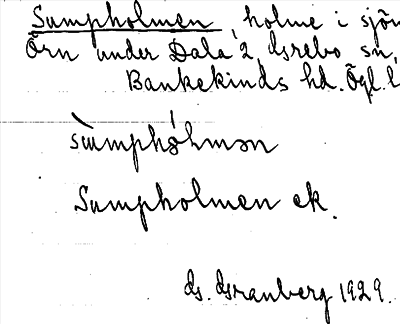 Sumpholmen, holme i sjön
Örn under Dala 2, Grebo sn,
Bankekinds hd. Ögl. l
sùmphólmən
Sumpholmen ek.
G. Granberg 1929.